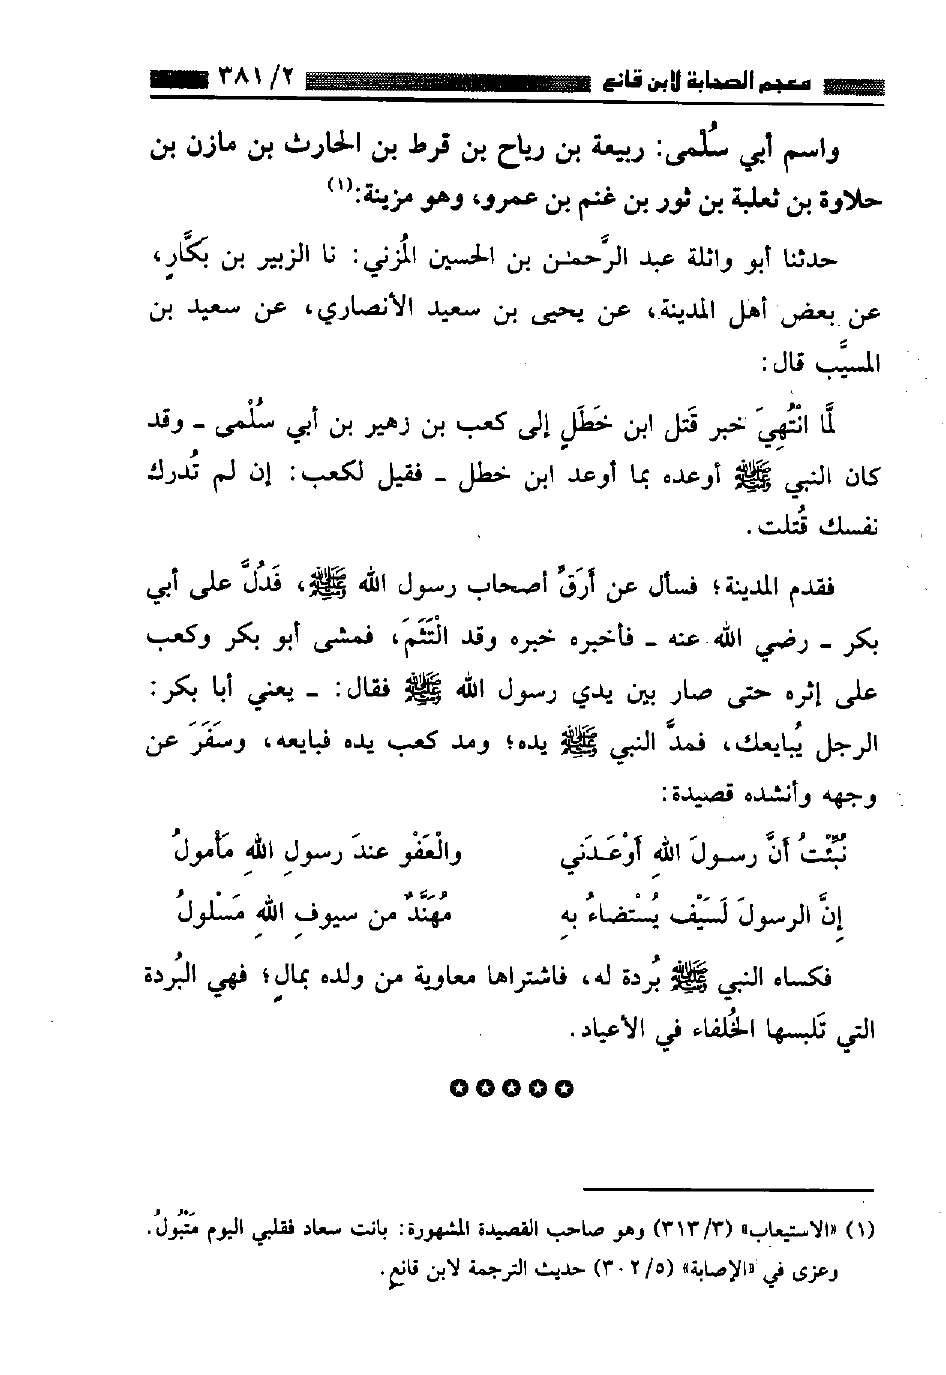 معجم الصحابة لابن قانع ٢/ ٣٨١
واسم أبي سُلْمى: ربيعة بن رياح بن قرط بن الحارث بن مازن بن
حلاوة بن ثعلبة بن ثور بن غنم بن عمرو، وهو مزينة:(١)
حدثنا أبو واثلة عبد الرَّحمٰن بن الحسين المُزني: نا الزبير بن بَكَّارٍ،
عن بعض أهل المدينة، عن يحيى بن سعيد الأنصاري، عن سعيد بن
المسيَّب قال:
لمَّا انْتُهِيَ خبر قَتل ابن خَطَلٍ إلى كعب بن زهير بن أبي سُلْمى ـ وقد
كان النبي ﷺ أوعده بما أوعد ابن خطل ـ فقيل لكعب: إن لم تُدرك
نفسك قُتلت.
فقدم المدينة؛ فسأل عن أَرَقِّ أصحاب رسول الله ﷺ، فَدُلَّ على أبي
بكر ـ رضي الله عنه ـ فأخبره خبره وقد الْتَثَمَ، فمشى أبو بكر وكعب
على إثره حتى صار بين يدي رسول الله ﷺ فقال: ـ يعني أبا بكر:
الرجل يُبايعك، فمدَّ النبي ﷺ يده؛ ومد كعب يده فبايعه، وسَفَرَ عن
وجهه وأنشده قصيدة:
نُبِّئْتُ أنَّ رسولَ اللهِ أوْعَدَني والْعَفْو عندَ رسولِ اللهِ مَأْمولُ
إنَّ الرسولَ لَسَيْف يُسْتضاءُ بهِ مُهَنَّدٌ من سيوفِ اللهِ مَسْلولُ
فكساه النبي ﷺ بُردة له، فاشتراها معاوية من ولده بمالٍ؛ فهي البُردة
التي تَلبسها الخُلفاء في الأعياد.
✪✪✪✪✪
(١) «الاستيعاب» (٣/ ٣١٣) وهو صاحب القصيدة المشهورة: بانت سعاد فقلبي اليوم مَتْبُولُ.
وعزى في «الإصابة» (٥/ ٣٠٢) حديث الترجمة لابن قانعٍ.